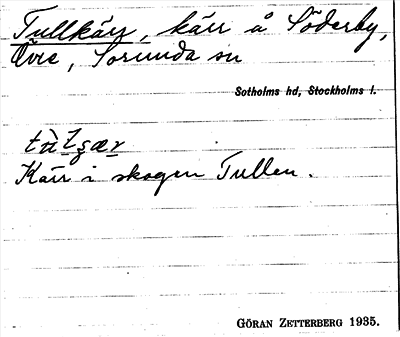 Tullkärr, kärr å Söderby,
Övre, Sorunda sn
Sotholms hd, Stockholms l.
Kärr i skogen Tullen.
GÖRAN ZETTERBERG 1935.